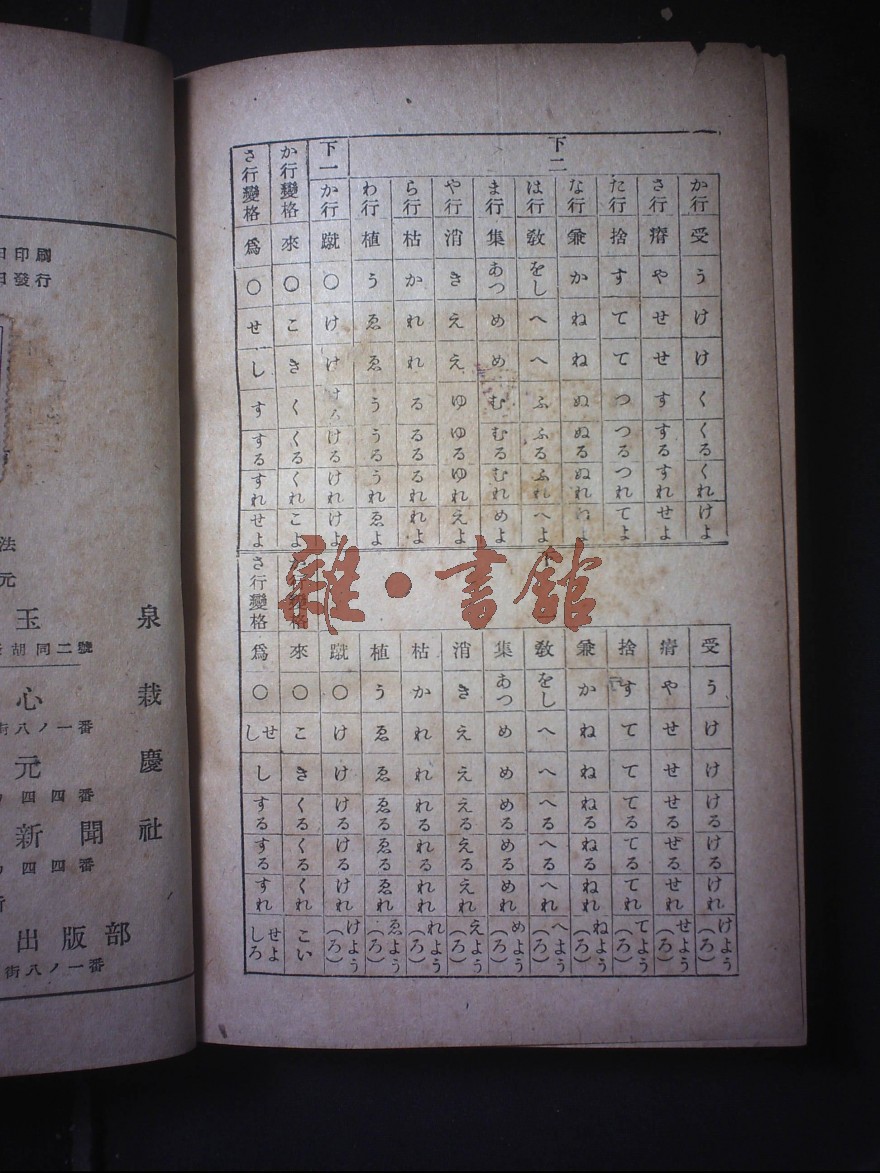 下二
か行 受 う け け く くる くれ けよ
さ行 瘠 や せ せ す する すれ せよ
た行 捨 す て て つ つる つれ てよ
な行 兼 か ね ね ぬ ぬる ぬれ
は行 敎 をし へ へ ふ ふる ふれ へよ
ま行 集 あつ め め む むる むれ めよ
や行 消 き え え ゆ ゆる ゆれ えよ
ら行 枯 か れ れ る るる るれ れよ
わ行 植 う ゑ ゑ う うる うれ ゑよ
下一 か行 蹴 〇 け け ける ける けれ けよ
か行變格 來 〇 こ き く くる くれ こよ
さ行變格 爲 〇 せ し す する すれ せよ
受 う け け ける ける けれ けよう(ろ)
瘠 や せ せ せる せる せれ せよう(ろ)
捨 す て て てる てる てれ てよう(ろ)
兼 か ね ね ねる ねる ねれ ねよう(ろ)
敎 をし へ へ へる へる へれ へよう(ろ)
集 あつ め め める める めれ めよう(ろ)
消 き え え える える えれ えよう(ろ)
枯 か れ れ れる れる れれ れよう(ろ)
植 う ゑ ゑ ゑる ゑる ゑれ ゑよう(ろ)
蹴 〇 け け ける ける けれ けよう(ろ)
行變格 來 〇 こ き くる くる くれ こい
さ行變格 爲 〇 せし し する する すれ せよしろ
雜·書館
日印刷
日發行
法
元
玉泉
胡同二號
心栽
街八ノ一番
元慶
四四番
新聞社
四四番
出版部
街八ノ一番